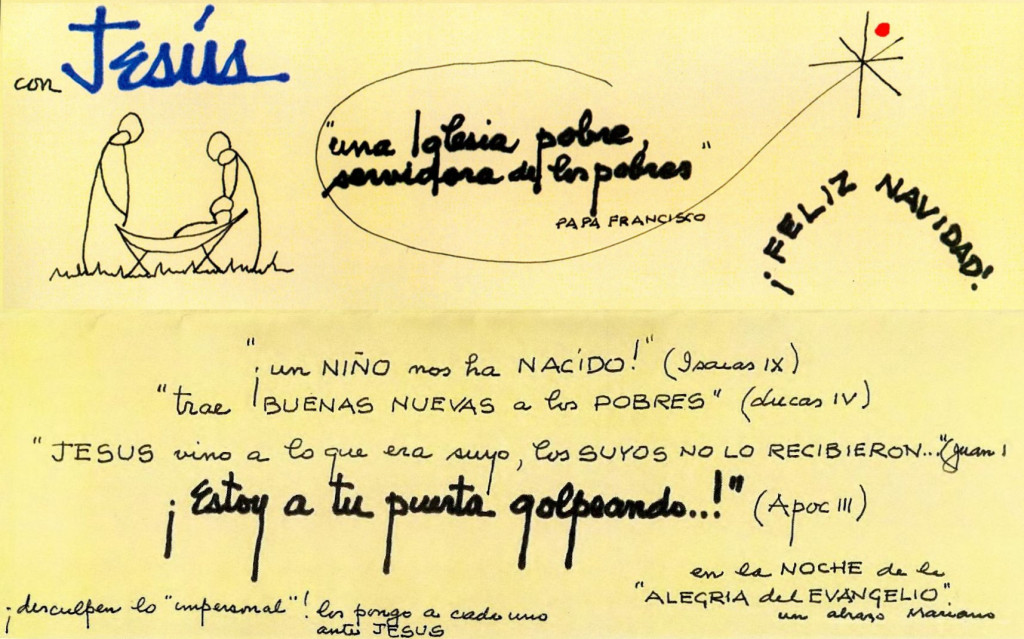 con Jesús
"una Iglesia pobre,
servidora de los pobres"
PAPA FRANCISCO
¡FELIZ NAVIDAD!
"¡un NIÑO nos ha NACIDO!" (Isaias IX)
"trae BUENAS NUEVAS a los POBRES" (Lucas IV)
"JESUS vino a lo que era suyo, los SUYOS NO LO RECIBIERON..." (Juan I
¡Estoy a tu puerta golpeando..!" (Apoc III)
en la NOCHE de la
"ALEGRIA del EVANGELIO"
un abrazo Mariano
¡disculpen lo "impersonal"! los pongo a cada uno
ante JESUS